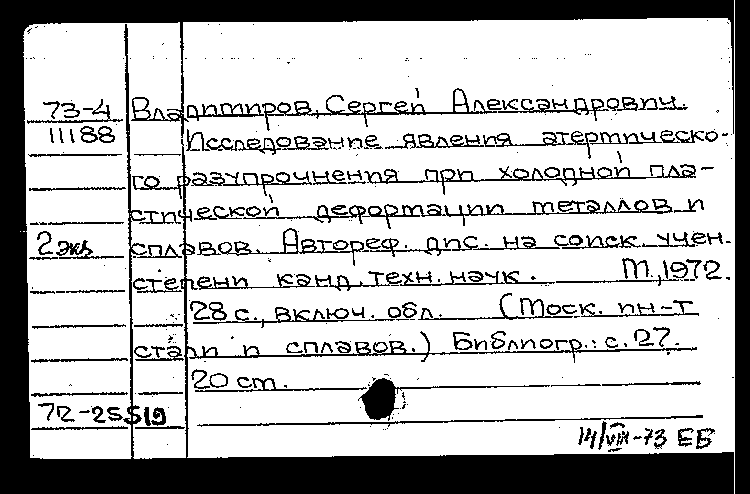 73-4 Владимиров, Сергей Александрович.
11188 Исследование явления атермическо-
го разупрочнения при холодной пла-
стической деформации металлов и
2 экз сплавов. Автореф. дис. на соиск. учен.
степени канд. техн. наук. М., 1972.
28 с., включ. обл. (Моск. ин-т
стали и сплавов.) Библиогр.: с. 27.
20 см.
72-25519
14/VIII-73 ЕБ